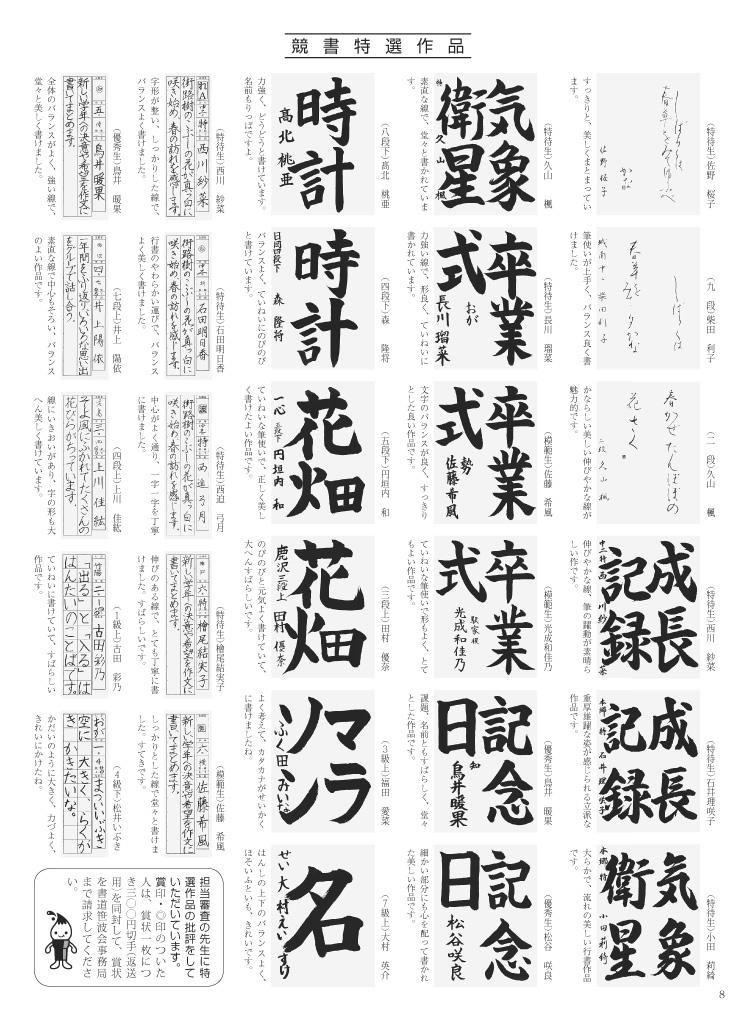 競書特選作品
(特待生)佐野 桜子
すっきりと、美しくまとまってい
ます。
佐野桜子
(九 段)柴田 利子
筆使いが上手く、バランス良く書
けました。
(二 段)久山 楓
かならしい美しい伸びやかな線が
魅力的です。
春かぜたんぽぽの
花さく
二段 久山楓
(特待生)西川 紗菜
伸びやかな線、筆の躍動が素晴ら
しい作です。
成長
記録
(特待生)石井理咲子
重厚雄躍な姿が感じられる立派な
作品です。
成長
記録
(特待生)小田 莉綺
大らかで、流れの美しい行書作品
です。
気象
衛星
小田莉綺
(特待生)久山 楓
素直な線で、堂々と書かれていま
す。
気象
衛星
特 久山楓
(特待生)長川 瑠菜
力強い線で、形良く、ていねいに
書かれています。
卒業
式
おが
長川瑠菜
(模範生)佐藤 希風
文字のバランスが良く、すっきり
とした良い作品です。
卒業
式
勢
佐藤希風
(模範生)光成和佳乃
ていねいな筆使いで形もよく、とて
もよい作品です。
卒業
式
光成和佳乃
(優秀生)鳥井 暖果
課題、名前ともすばらしく、堂々
とした作品です。
記念
日
知
鳥井暖果
(優秀生)松谷 咲良
細かい部分にも心を配って書かれ
た美しい作品です。
記念
日
松谷咲良
(八段下)髙北 桃亜
力強く、どうどうと書けています。
名前もりっぱですよ。
時計
髙北桃亜
(四段下)森 隆将
バランスよく、ていねいにのびのび
と書けています。
時計
日岡四段下
森隆将
(五段下)円垣内 和
ていねいな筆使いで、正しく美し
く書けたよい作品です。
花畑
一心 五段下 円垣内和
(三段上)田村 優奈
のびのびと元気よく書けていて、
大へんすばらしいです。
花畑
鹿沢三段上 田村優奈
(3級上)福田 愛菜
よく考えて、カタカナがせいかく
に書けましたね。
マラ
ソン
ふく田
(7級上)大村 英介
はんしの上下のバランスよく、
ほそいふといも、きれいです。
名
せい大村えいすけ
(特待生)西川 紗菜
字形が整い、しっかりした線で、
バランスよく書けました。
街路樹のこぶしの花が真っ白に
咲き始め、春の訪れを感じます。
西川紗菜
(特待生)石田明日香
行書のやわらかい運びで、バランス
よく美しく書けました。
街路樹のこぶしの花が真っ白に
咲き始め、春の訪れを感じます。
石田明日香
(特待生)西迫 弓月
中心がよく通り、一字一字を丁寧
に書けました。
街路樹のこぶしの花が真っ白に
咲き始め、春の訪れを感じます。
西迫弓月
(特待生)檜尾結実子
伸びのある線で、とても丁寧に書
けました。すばらしいです。
新しい学年への決意や希望を作文に
書いてまとめます。
檜尾結実子
(模範生)佐藤 希風
しっかりとした線で堂々と書けま
した。すてきです。
新しい学年への決意や希望を作文に
書いてまとめます。
佐藤希風
(優秀生)鳥井 暖果
全体のバランスがよく、強い線で、
堂々と美しく書けました。
新しい学年への決意や希望を作文に
書いてまとめます。
鳥井暖果
(七段上)井上 陽依
素直な線で中心もそろい、バランス
のよい作品です。
一年間をふり返り、いろいろな思い出
をグループで話し合う。
井上陽依
(四段上)上川 佳紘
線にいきおいがあり、字の形も大
へん美しく書けています。
そよ風にふかれて、たくさんの
花びらがちっています。
上川佳紘
(1級上)古田 彩乃
ていねいに書けていて、すばらしい
作品です。
「出る」と「入る」は
はんたいのことばです。
古田彩乃
(4級下)松井いぶき
かだいのように大きく、力づよく、
きれいにかけたね。
空に 大きく、らくが
き かきたいな。
まついいぶき
担当審査の先生に特
選作品の批評をして
いただいています。
賞印・◎印のついた
人は、賞状一枚につ
き三〇〇円切手(返送
用)を同封して、賞状
を書道笹波会事務局
まで請求してくださ
い。
8